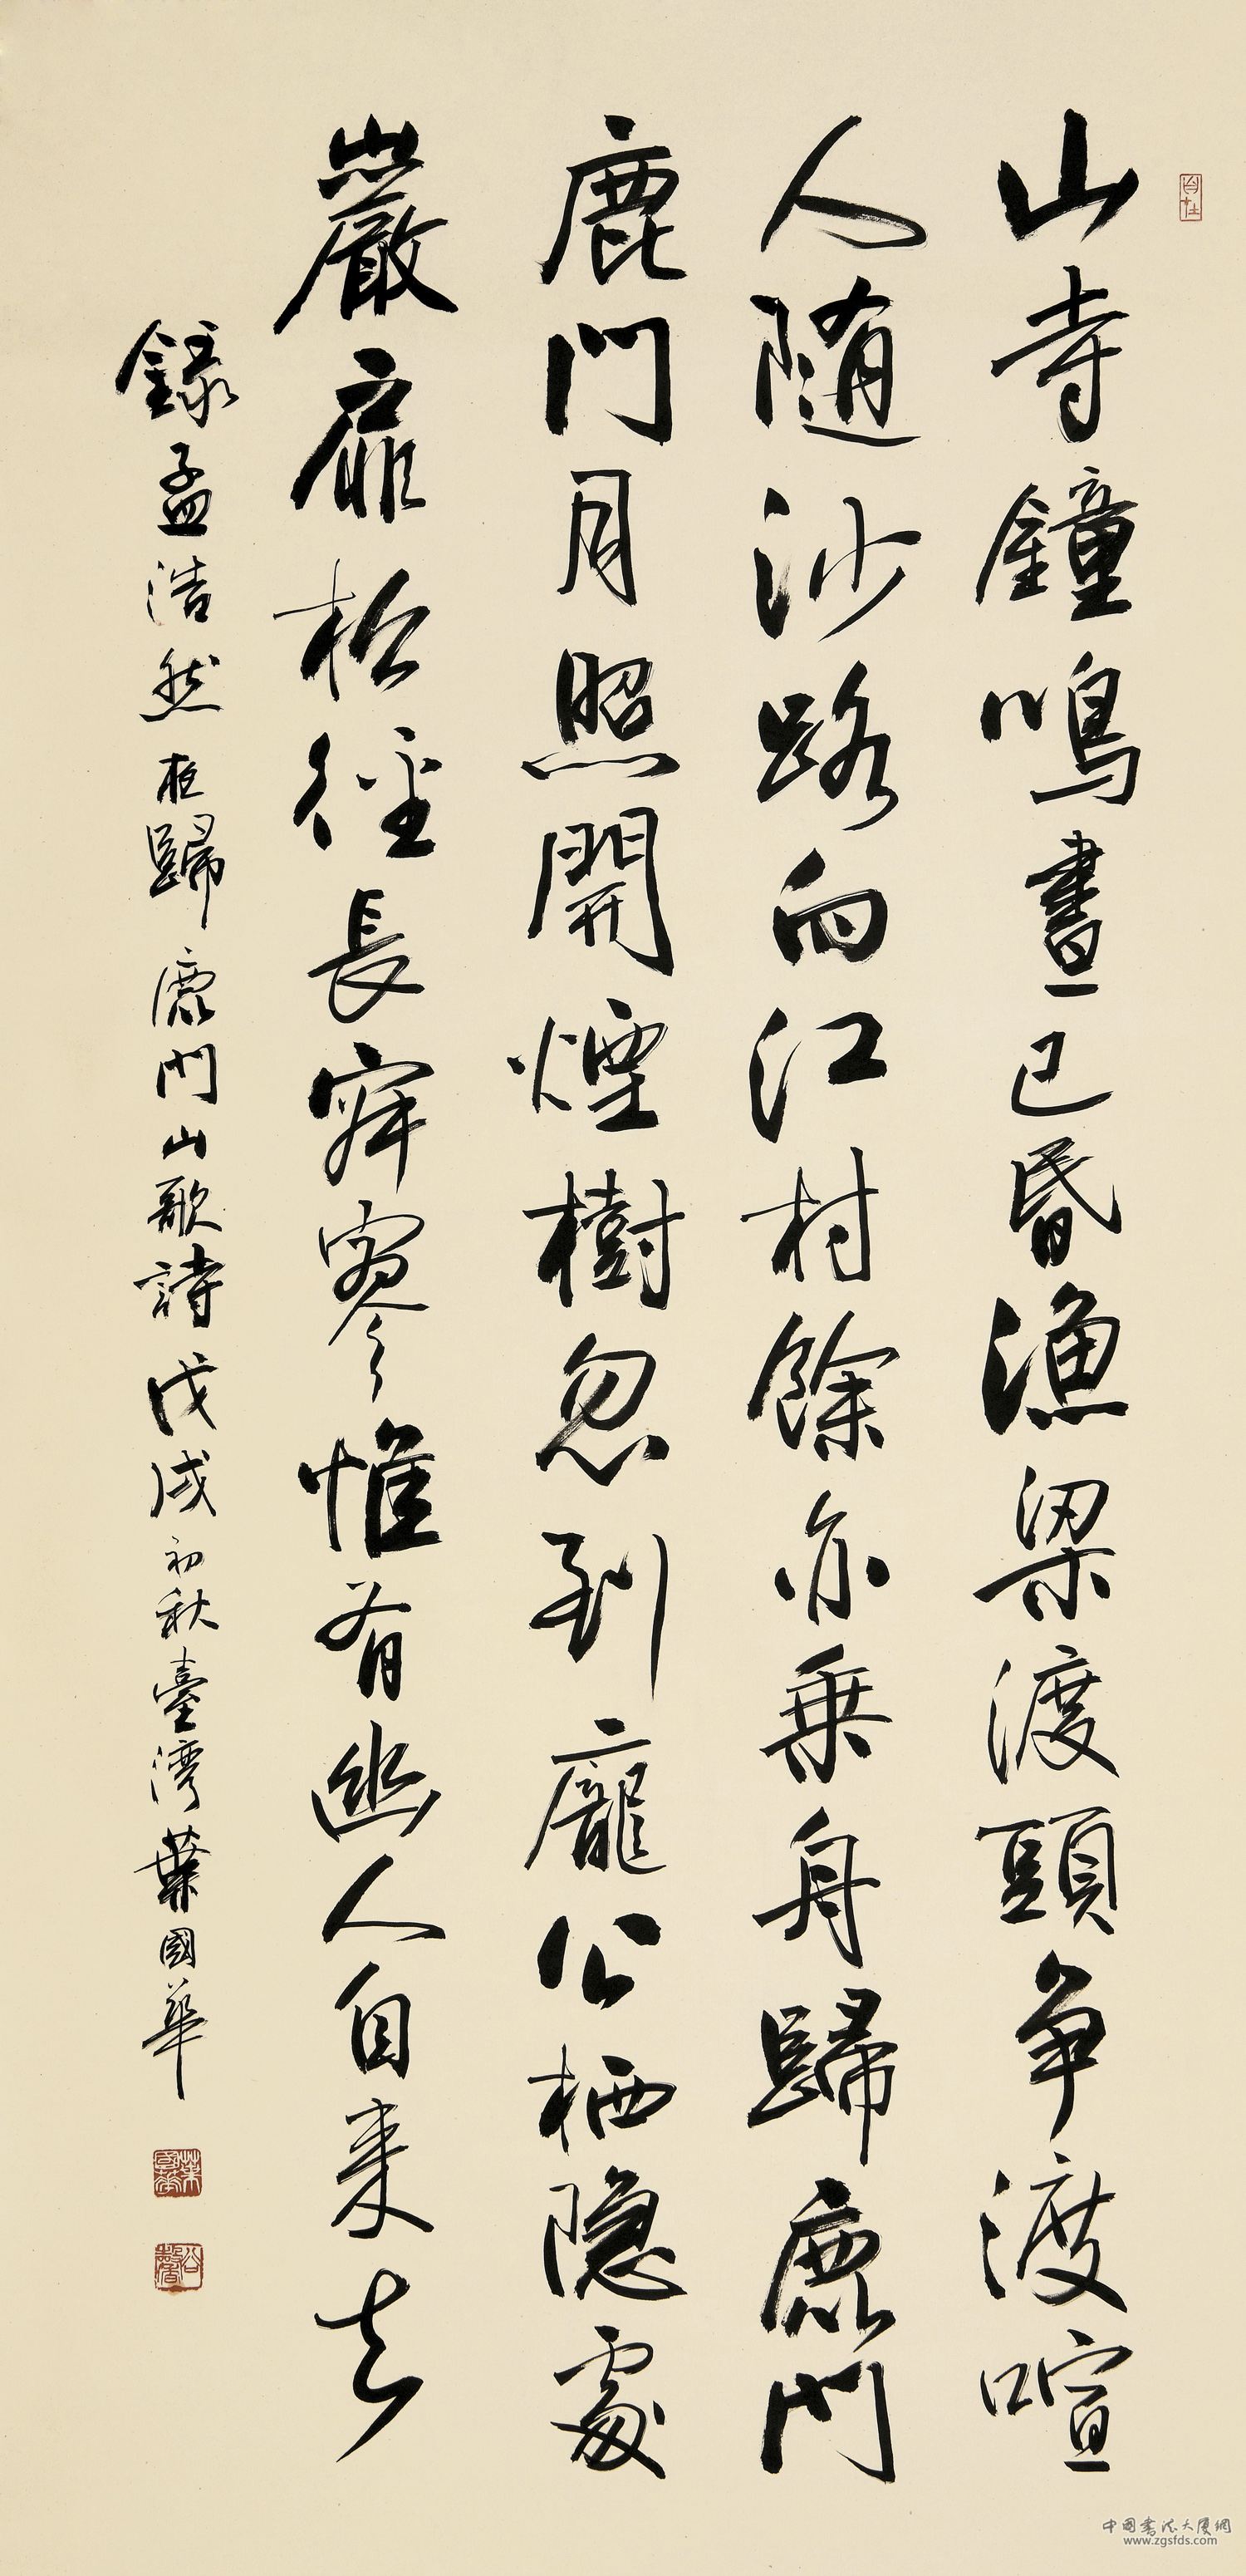 自在
山寺鐘鳴晝已昏漁梁渡頭争渡喧
人随沙路向江村餘亦乗舟歸鹿門
鹿門月照開煙樹忽到龐公栖隐處
巖扉松徑長寂寥惟有幽人自来去
錄孟浩然夜歸鹿門山歌詩戊戌初秋臺灣葉國華
葉國華
中國書法大厦網
www.zgsfds.com